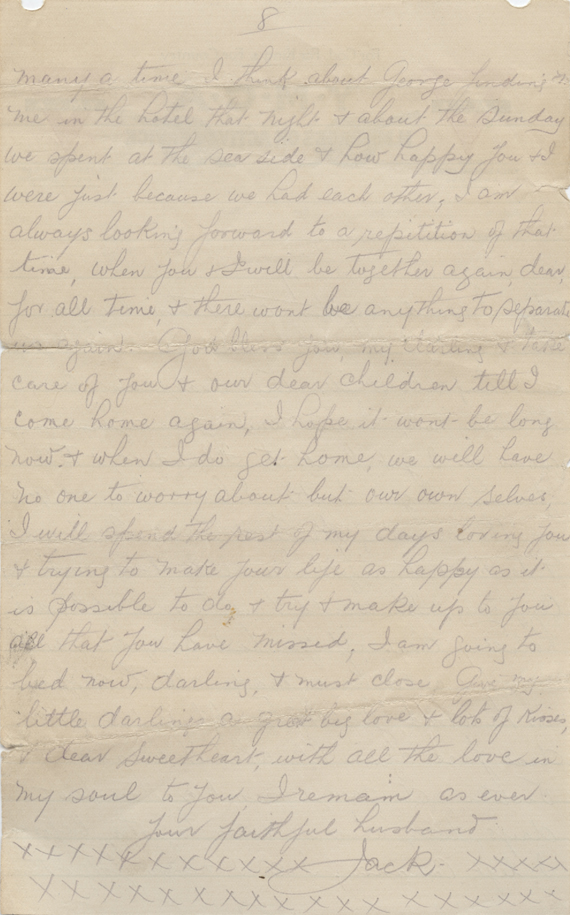 8
many a time I think about George finding
me in the hotel that night & about the Sunday
we spent at the sea side & how happy you & I
were just because we had each other, I am
always looking forward to a repitition of that
time, when you & I will be together again, dear,
for all time, & there wont be anything to separate
us again. God bless you, my darling & take
care of you & our dear children till I
come home again, I hope it wont be long
now, & when I do get home, we will have
no one to worry about but our own selves,
I will spend the rest of my days loving you
& trying to make your life as happy as it
is possible to do, & try & make up to you
all that you have missed, I am going to
bed now, darling, & must close, Give my
little darlings a great big love & lots of kisses,
& dear Sweetheart, with all the love in
my soul to you, I remain as ever
your faithful husband
xxxxxxxxxxxxx Jack. xxxxx
xxxxxxxxxxxxxxxxxxxx